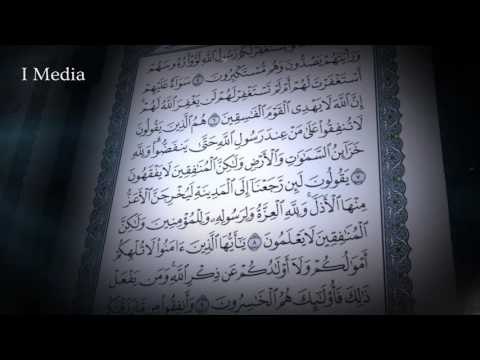 I Media
يَسْتَغْفِرْ لَكُمْ رَسُولُ ٱللَّهِ لَوَّوْا۟ رُءُوسَهُمْ
وَرَأَيْتَهُمْ يَصُدُّونَ وَهُم مُّسْتَكْبِرُونَ ٥ سَوَآءٌ عَلَيْهِمْ
أَسْتَغْفَرْتَ لَهُمْ أَمْ لَمْ تَسْتَغْفِرْ لَهُمْ لَن يَغْفِرَ ٱللَّهُ لَهُمْ
إِنَّ ٱللَّهَ لَا يَهْدِى ٱلْقَوْمَ ٱلْفَٰسِقِينَ ٦ هُمُ ٱلَّذِينَ يَقُولُونَ
لَا تُنفِقُوا۟ عَلَىٰ مَنْ عِندَ رَسُولِ ٱللَّهِ حَتَّىٰ يَنفَضُّوا۟ ۗ وَلِلَّهِ
خَزَآئِنُ ٱلسَّمَٰوَٰتِ وَٱلْأَرْضِ وَلَٰكِنَّ ٱلْمُنَٰفِقِينَ لَا يَفْقَهُونَ
٧ يَقُولُونَ لَئِن رَّجَعْنَآ إِلَى ٱلْمَدِينَةِ لَيُخْرِجَنَّ ٱلْأَعَزُّ
مِنْهَا ٱلْأَذَلَّ ۚ وَلِلَّهِ ٱلْعِزَّةُ وَلِرَسُولِهِۦ وَلِلْمُؤْمِنِينَ وَلَٰكِنَّ
ٱلْمُنَٰفِقِينَ لَا يَعْلَمُونَ ٨ يَٰٓأَيُّهَا ٱلَّذِينَ ءَامَنُوا۟ لَا تُلْهِكُمْ
أَمْوَٰلُكُمْ وَلَآ أَوْلَٰدُكُمْ عَن ذِكْرِ ٱللَّهِ ۚ وَمَن يَفْعَلْ
ذَٰلِكَ فَأُو۟لَٰٓئِكَ هُمُ ٱلْخَٰسِرُونَ ٩ وَأَنفِقُوا۟ مِن مَّا رَزَقْنَٰكُم